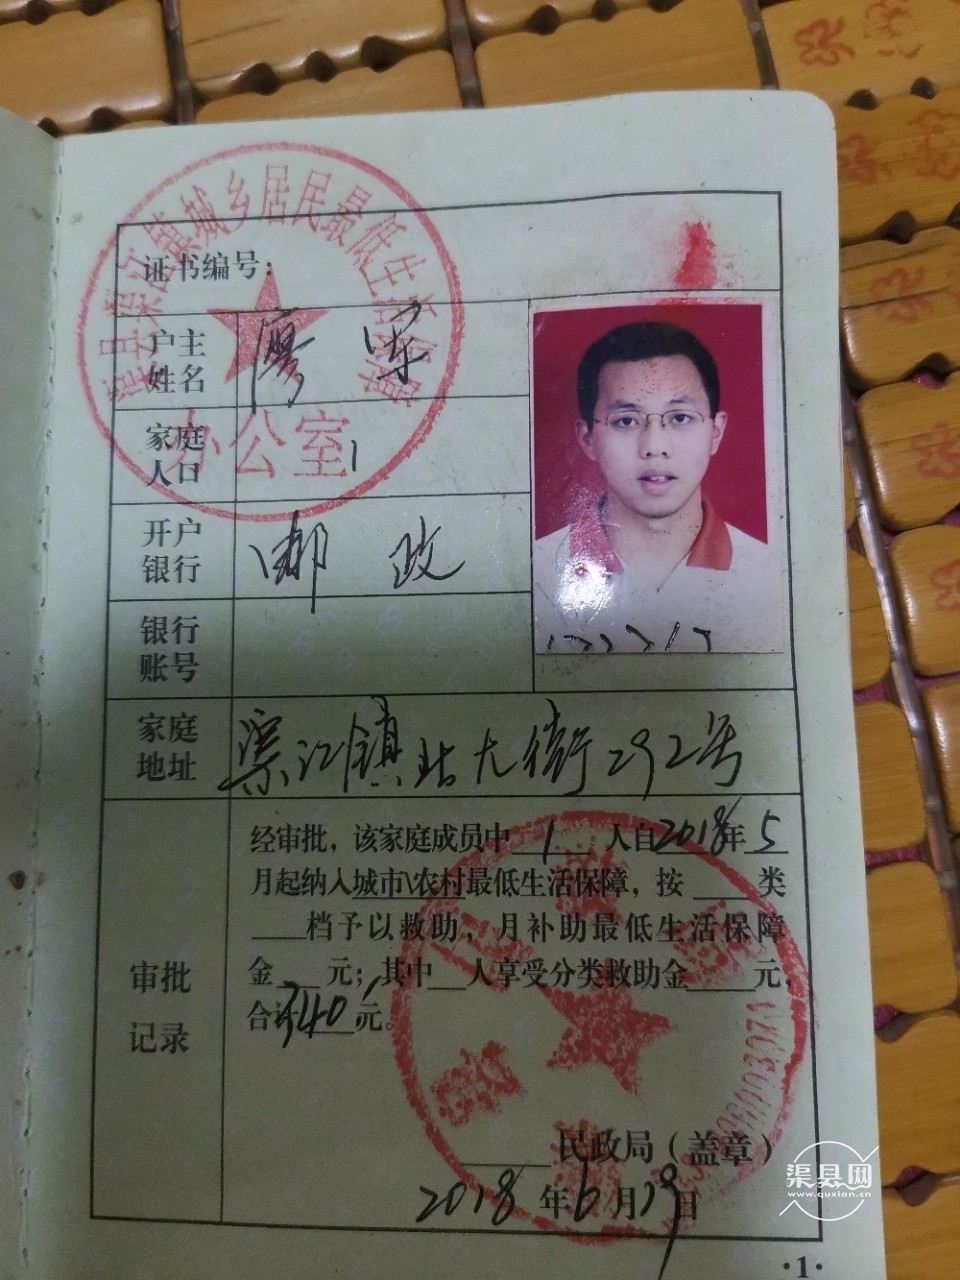 渠县渠江镇城乡居民最低生活保障
办公室
证书编号：
户主
姓名
廖军
家庭
人口
1
开户
银行
邮政
银行
账号
家庭
地址
渠江镇北大街292号
审批
记录
经审批，该家庭成员中1人自2018年5
月起纳入城市\农村最低生活保障，按____类
____档予以救助，月补助最低生活保障
金____元；其中__人享受分类救助金____元，
合计340元。
民政局（盖章）
2018年6月19日
·1·
渠县网
www.quxian.cn